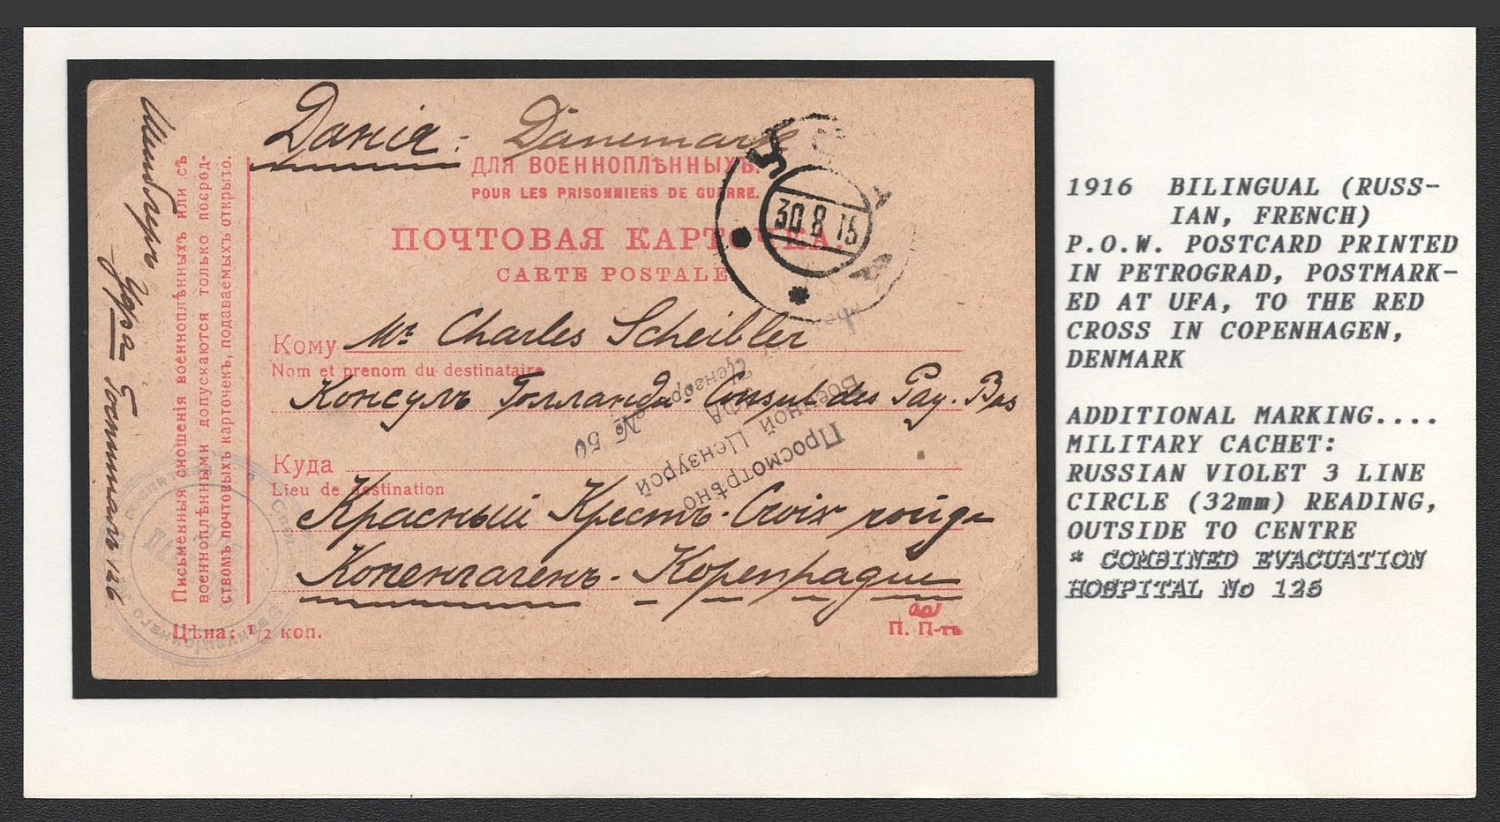 Данія: Dänemark
ДЛЯ ВОЕННОПЛѢННЫХЪ.
POUR LES PRISONNIERS DE GUERRE.
ПОЧТОВАЯ КАРТОЧКА.
CARTE POSTALE
30 8 15
Кому Mr Charles Scheibler
Nom et prenom du destinataire
Консулъ Голланди. Consul des Pay. Bas
Куда
Lieu de destination
Красный Крестъ. Croix rouge
Копенгагенъ. Kopenhague
Цѣна: 1/2 коп.
П. П-тъ
Просмотрѣно
Военной Цензурой
УФА
Цензоръ № 50
Письменныя сношенія военноплѣнныхъ или съ
военноплѣнными допускаются только посред-
ствомъ почтовыхъ карточекъ, подаваемыхъ открыто.
Уфа Госпиталь 126
1916 BILINGUAL (RUSS-
IAN, FRENCH)
P.O.W. POSTCARD PRINTED
IN PETROGRAD, POSTMARK-
ED AT UFA, TO THE RED
CROSS IN COPENHAGEN,
DENMARK
ADDITIONAL MARKING....
MILITARY CACHET:
RUSSIAN VIOLET 3 LINE
CIRCLE (32mm) READING,
OUTSIDE TO CENTRE
* COMBINED EVACUATION
HOSPITAL No 126